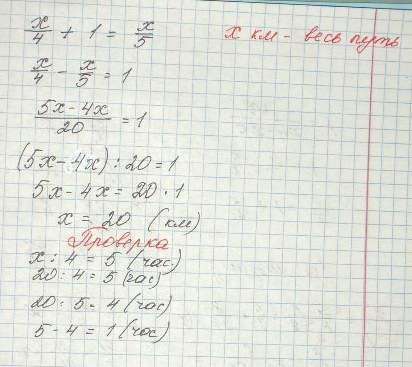 x/4 + 1 = x/5
x км - весь путь
x/4 - x/5 = 1
(5x - 4x)/20 = 1
(5x - 4x) : 20 = 1
5x - 4x = 20 · 1
x = 20 (км)
Проверка
x : 4 = 5 (час)
20 : 4 = 5 (час)
20 : 5 = 4 (час)
5 - 4 = 1 (час)